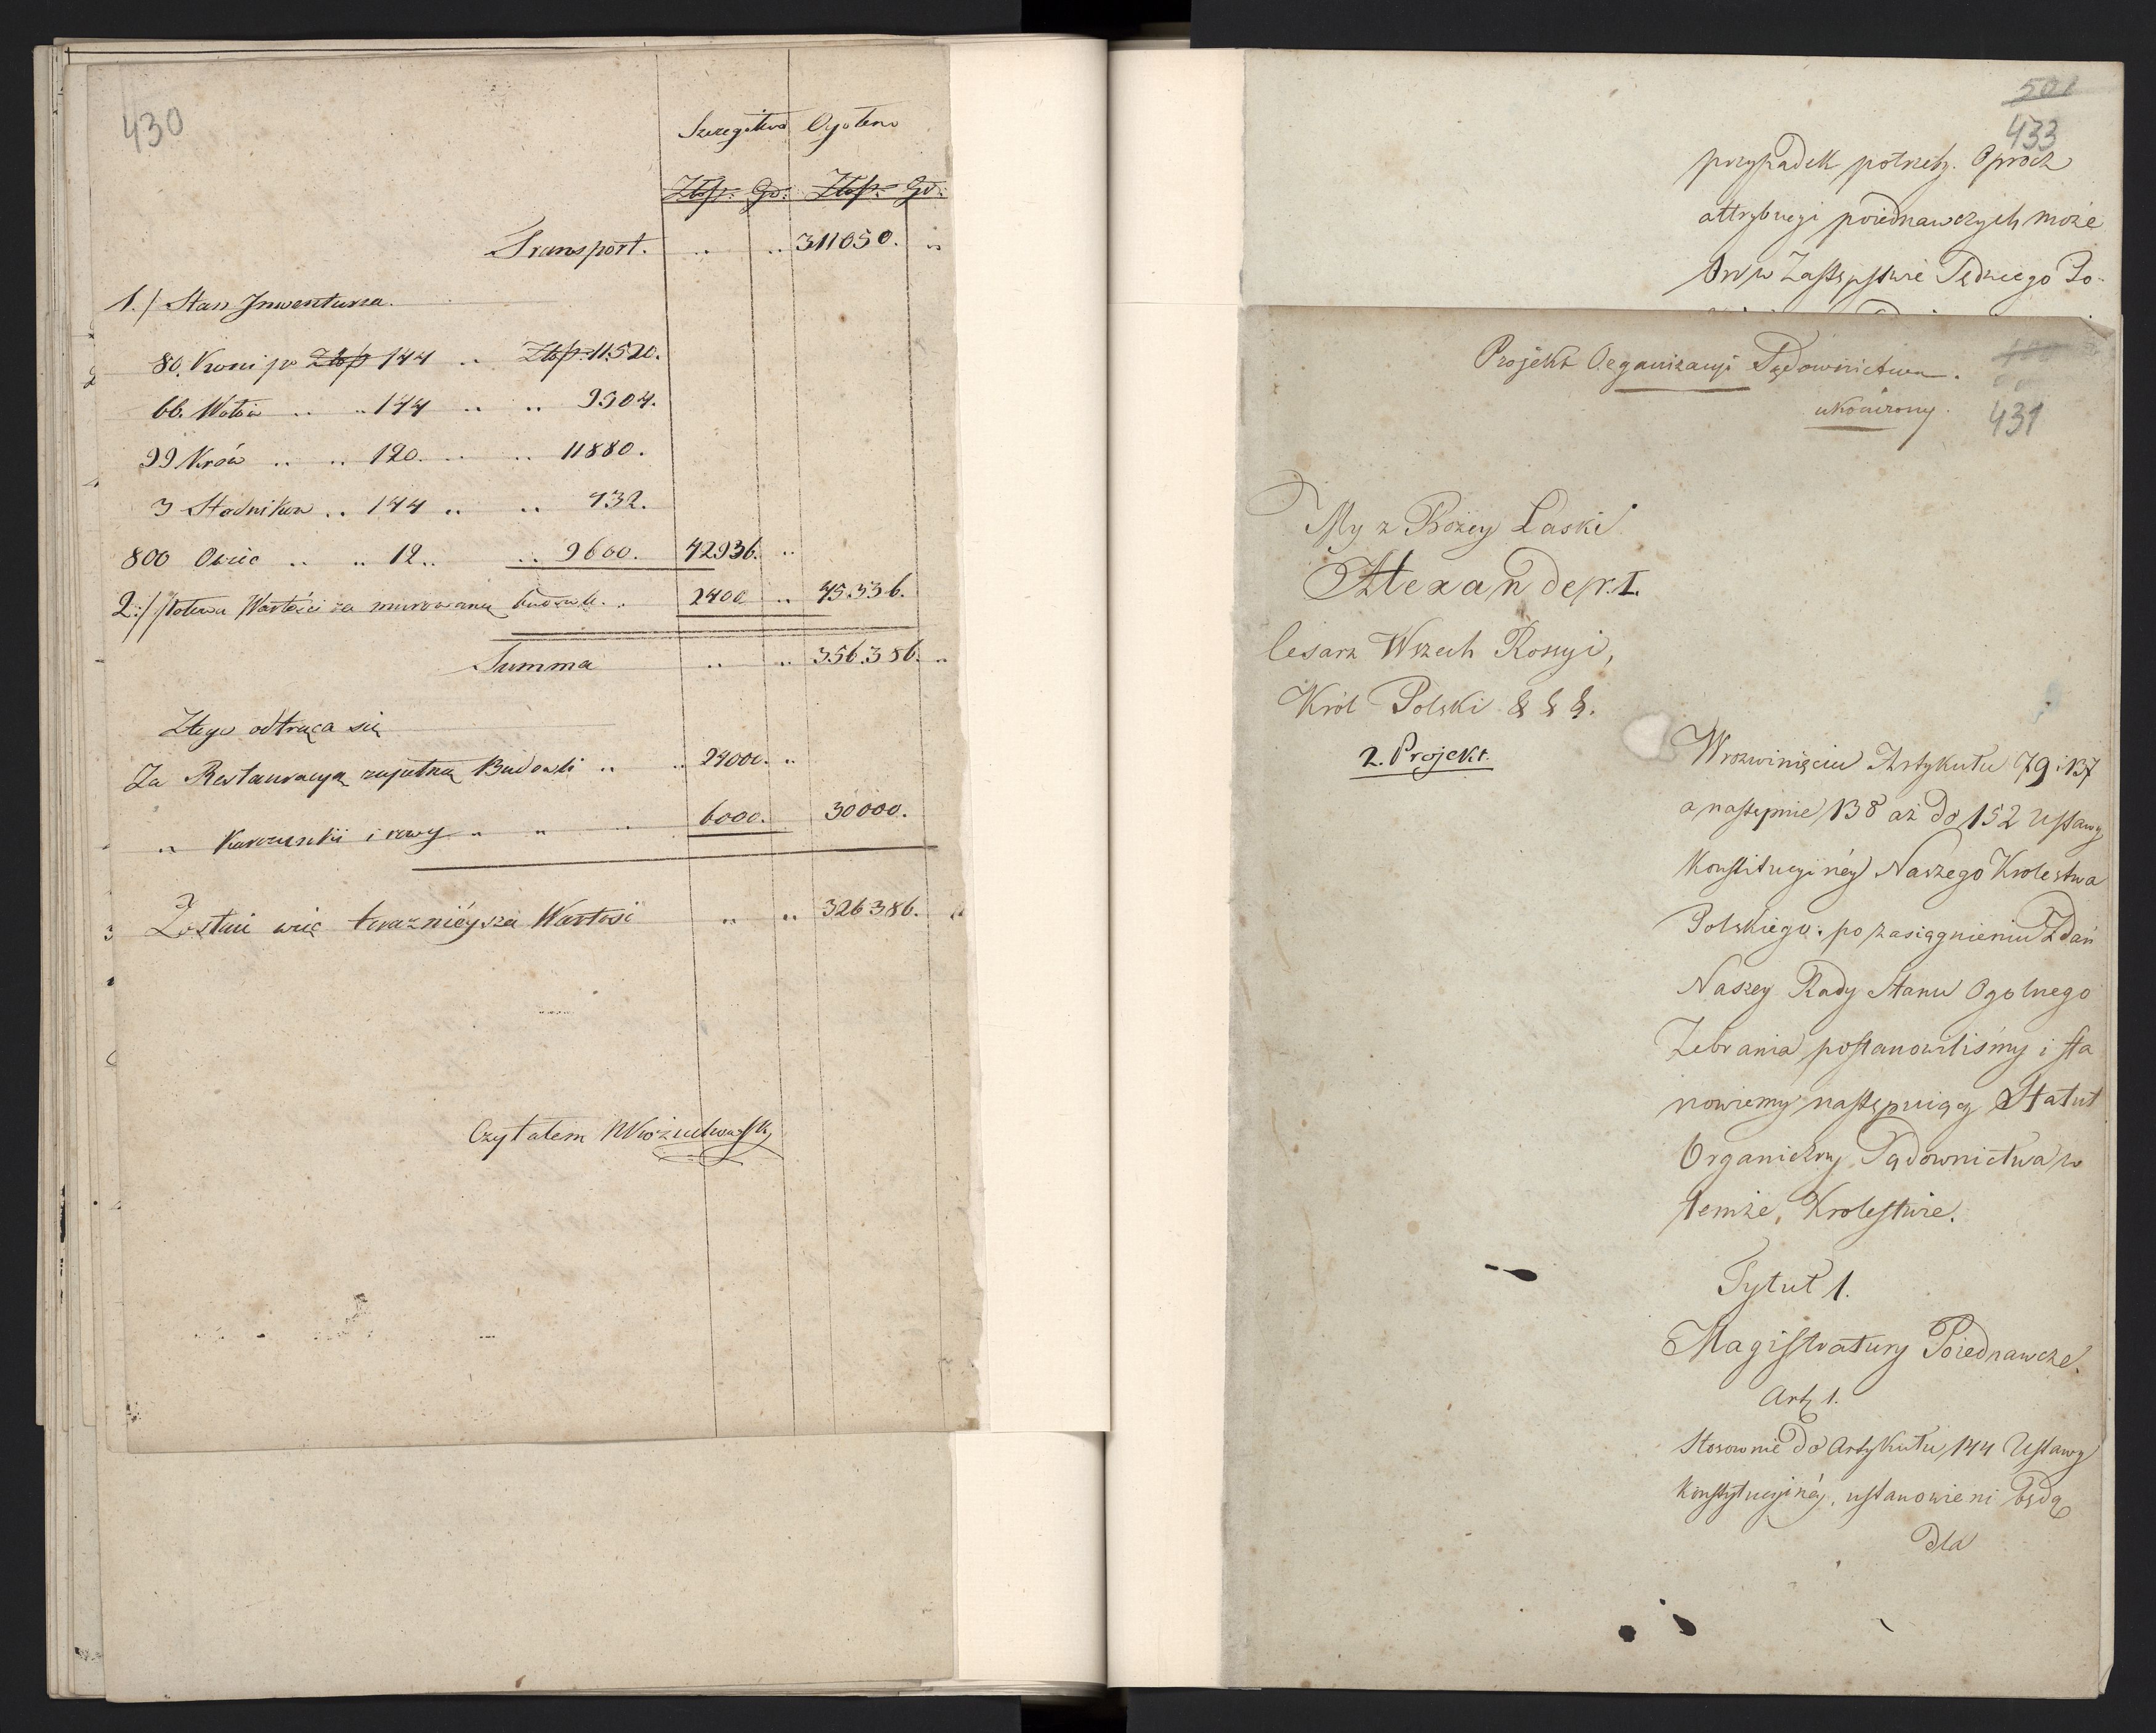 430
Szczegułowo Ogółem
Złp. Gr. Złp. Gr.
Transport. .. .. 311050. ..
1./ Stan Inwentarza.
80. Koni po Złp 144 .. Złp. 11520.
66. Wołów .. .. 144 .. .. 9504.
99 Krów .. .. 120. .. .. 11880.
3 Stadnikow .. 144 .. .. 432.
800 Owiec .. .. 12 .. .. 9600. 42936. ..
2./ Połowa Wartości za murowaną budowle .. 2400 .. 45.336.
Summa .. .. 356.386. ..
Ztego odtrąca się
Za Restauracyą zupełną Budowli .. .. 24000. ..
.. Karczunki i rowy .. .. .. 6000. 30000.
Zostaie więc teraznieysza Wartość .. .. 326386.
Czytałem
501
433
przypadek potrzeby. Oprócz
attrybucyi poiednawczych może
on w Zastępstwie Sędziego Po-
Projekt Organizacyi Sądownictwa.
ukończony.
431
My z Bożey Łaski
Alexander I.
Cesarz Wszech Rossyi,
Król Polski & & &.
2. Projekt.
W rozwinięciu Artykułu 79 i 137
a następnie 138 aż do 152 Ustawy
Konstitucyiney Naszego Krolestwa
Polskiego: po zasiągnieniu Zdań
Naszey Rady Stanu Ogolnego
Zebrania postanowiliśmy i sta
nowiemy następuiący Statut
Organiczny Sądownictwa w
temże Krolestwie.
Tytuł 1.
Magistratury Poiednawcze.
Art 1.
Stosownie do Artykułu 144 Ustawy
Konstytucyiney, ustanowieni będą
dla